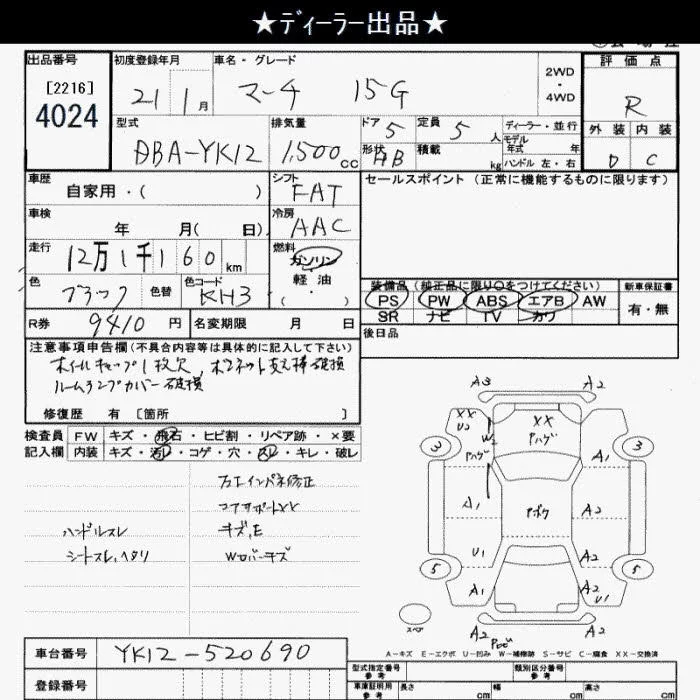 ★ディーラー出品★
出品番号 初度登録年月 車名・グレード 評価点
[2216]
4024
21 1月 マーチ 15G
2WD
・
4WD
R
型式 排気量 ドア 5 定員 5 人 ディーラー・並行
外装 内装
DBA-YK12 1,500cc
形状 HB 積載 kg
モデル年式 年
ハンドル 左・右
D C
車歴 シフト セールスポイント (正常に機能するものに限ります)
自家用・( ) FAT
車検 冷房
年 月( 日) AAC
走行 燃料
12万1千160km ガソリン
・
軽油
(・)
色 ブラック 色替 色コード KH3
装備品(純正品に限り○をつけてください) 新車保証書
PS PW ABS エアB AW 有・無
SR ナビ TV カワ
R券 9410円 名変期限 月 日
後日品
注意事項申告欄(不具合内容等は具体的に記入して下さい)
ホイールキャップ1枚欠、ボンネット支え棒破損
ルームランプカバー破損
修復歴 有 [箇所 ]
検査員 FW キズ・飛石・ヒビ割・リペア跡・×要
記入欄 内装 キズ・汚レ・コゲ・穴・スレ・キレ・破レ
コアサポートXX
ハンドルスレ キズ、E
シートスレ、ヘタリ Wロバーキズ
A3 A2
XX
U2
XX
Pハゲ
W2
Pハゲ
3 3
A1
A1 Pボケ A2
U1 A2
5 5
A1 A2
U1
スペア
A2 A2
A-キズ E-エクボ U-凹み W-補修跡 S-サビ C-腐食 XX-交換済
車台番号 YK12-520690
登録番号
型式指定番号 参考 類別区分番号 参考
車庫証明用 参考 長さ cm 幅 cm 高さ cm